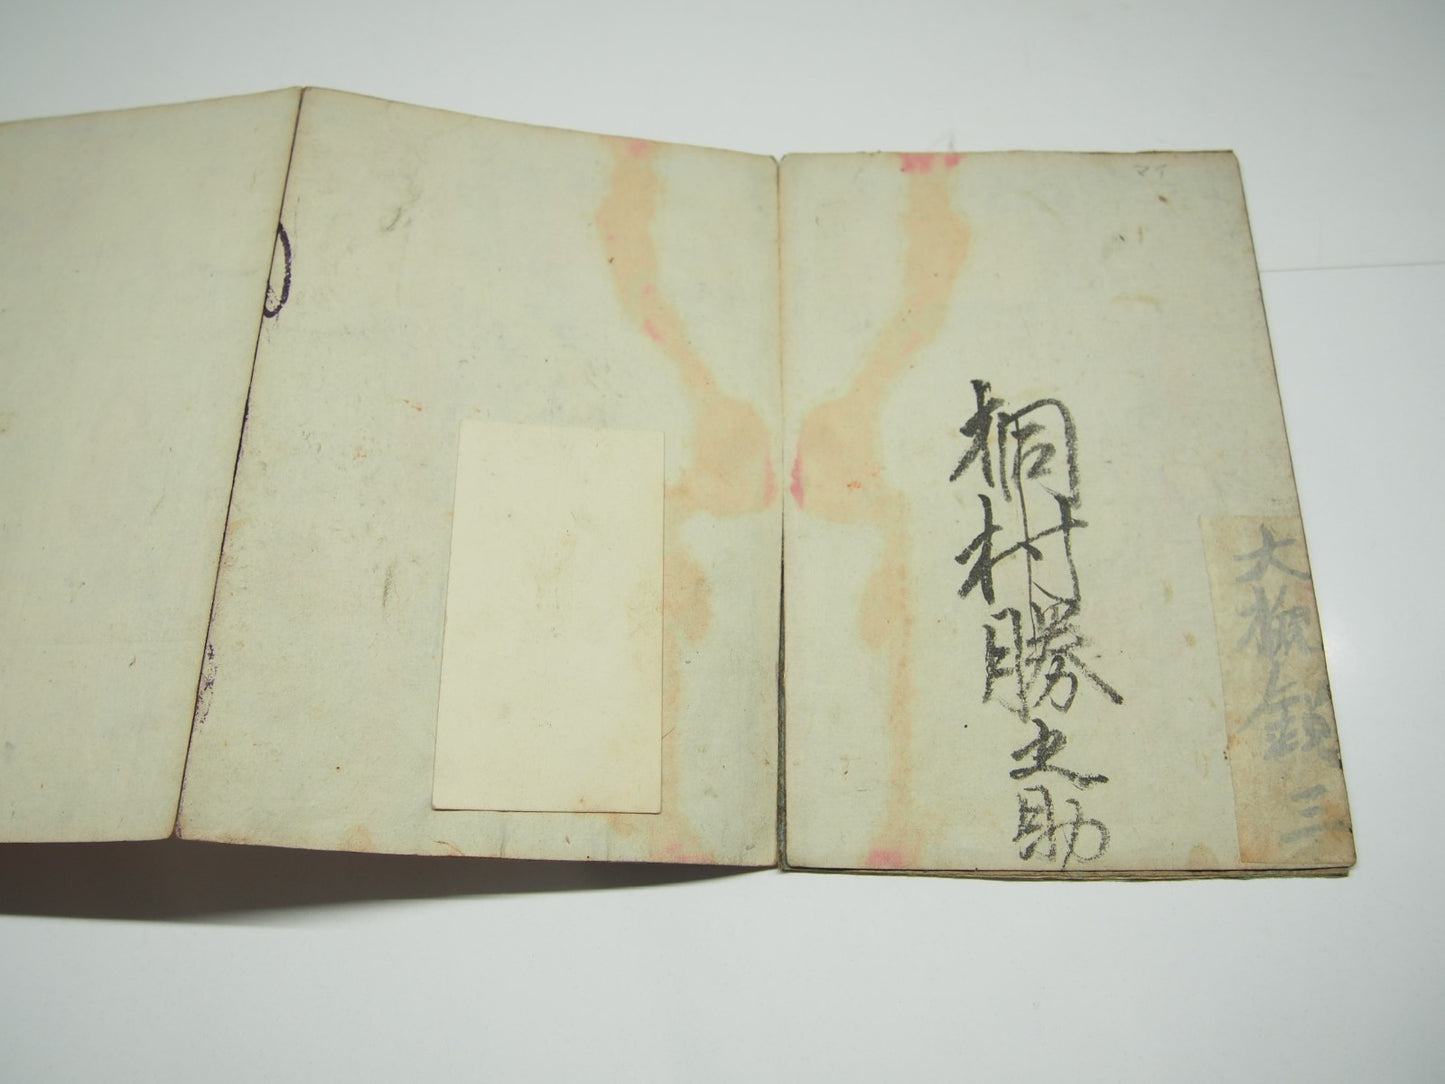 大概鎖 三
マイ
桐村勝之助